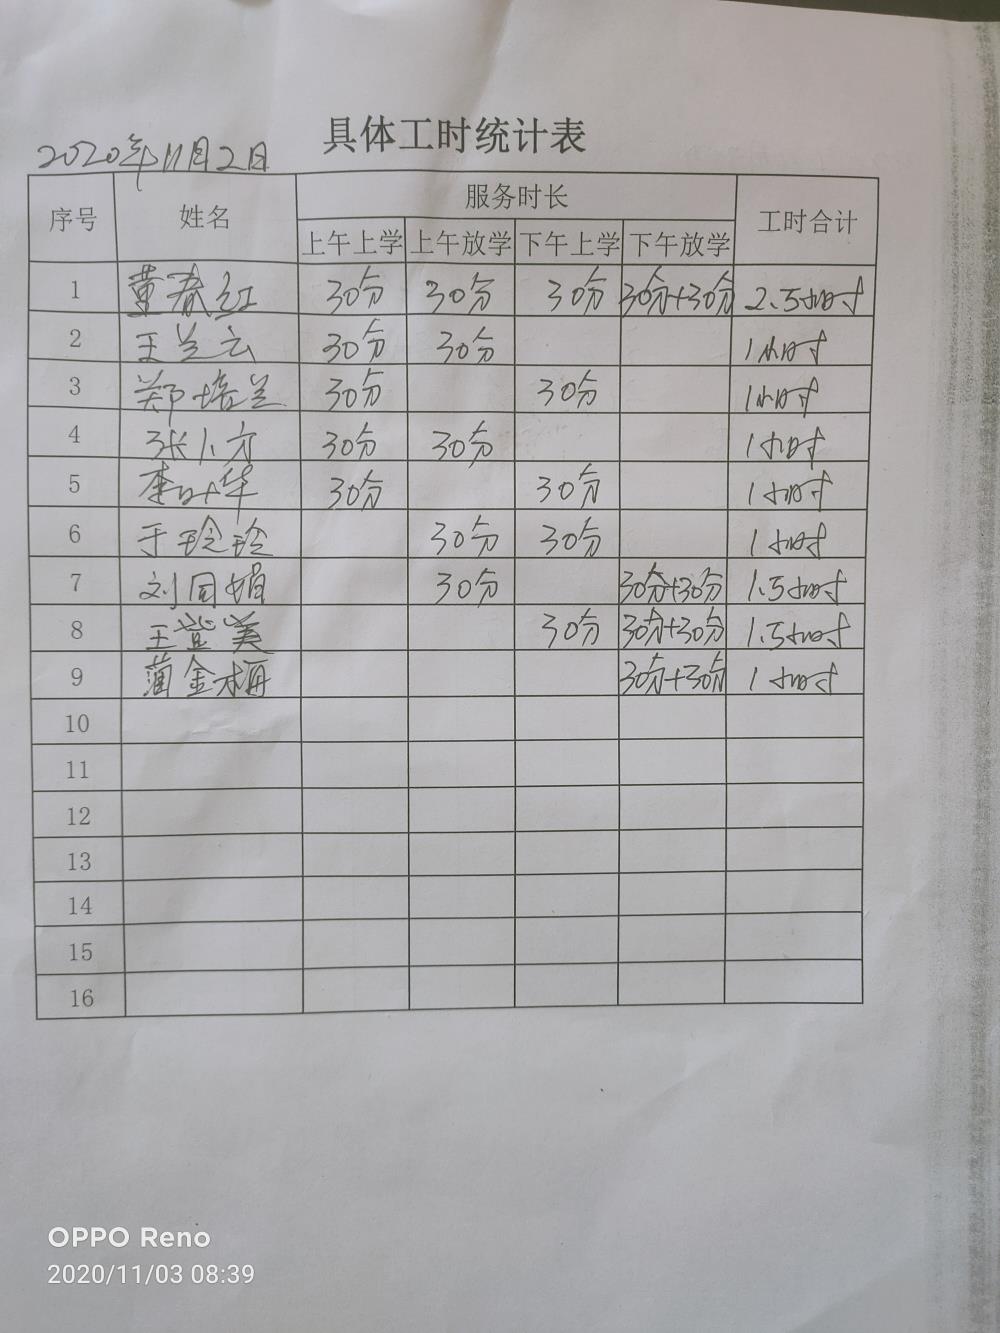 具体工时统计表
2020年11月2日
序号 姓名 服务时长 工时合计
上午上学 上午放学 下午上学 下午放学
1 董春红 30分 30分 30分 30分+30分 2.5小时
2 王兰云 30分 30分 1小时
3 郑培兰 30分 30分 1小时
4 张小方 30分 30分 1小时
5 李叶华 30分 30分 1小时
6 于玲玲 30分 30分 1小时
7 刘同娟 30分 30分+30分 1.5小时
8 王登美 30分 30分+30分 1.5小时
9 蔺金梅 30分+30分 1小时
10
11
12
13
14
15
16
OPPO Reno
2020/11/03 08:39